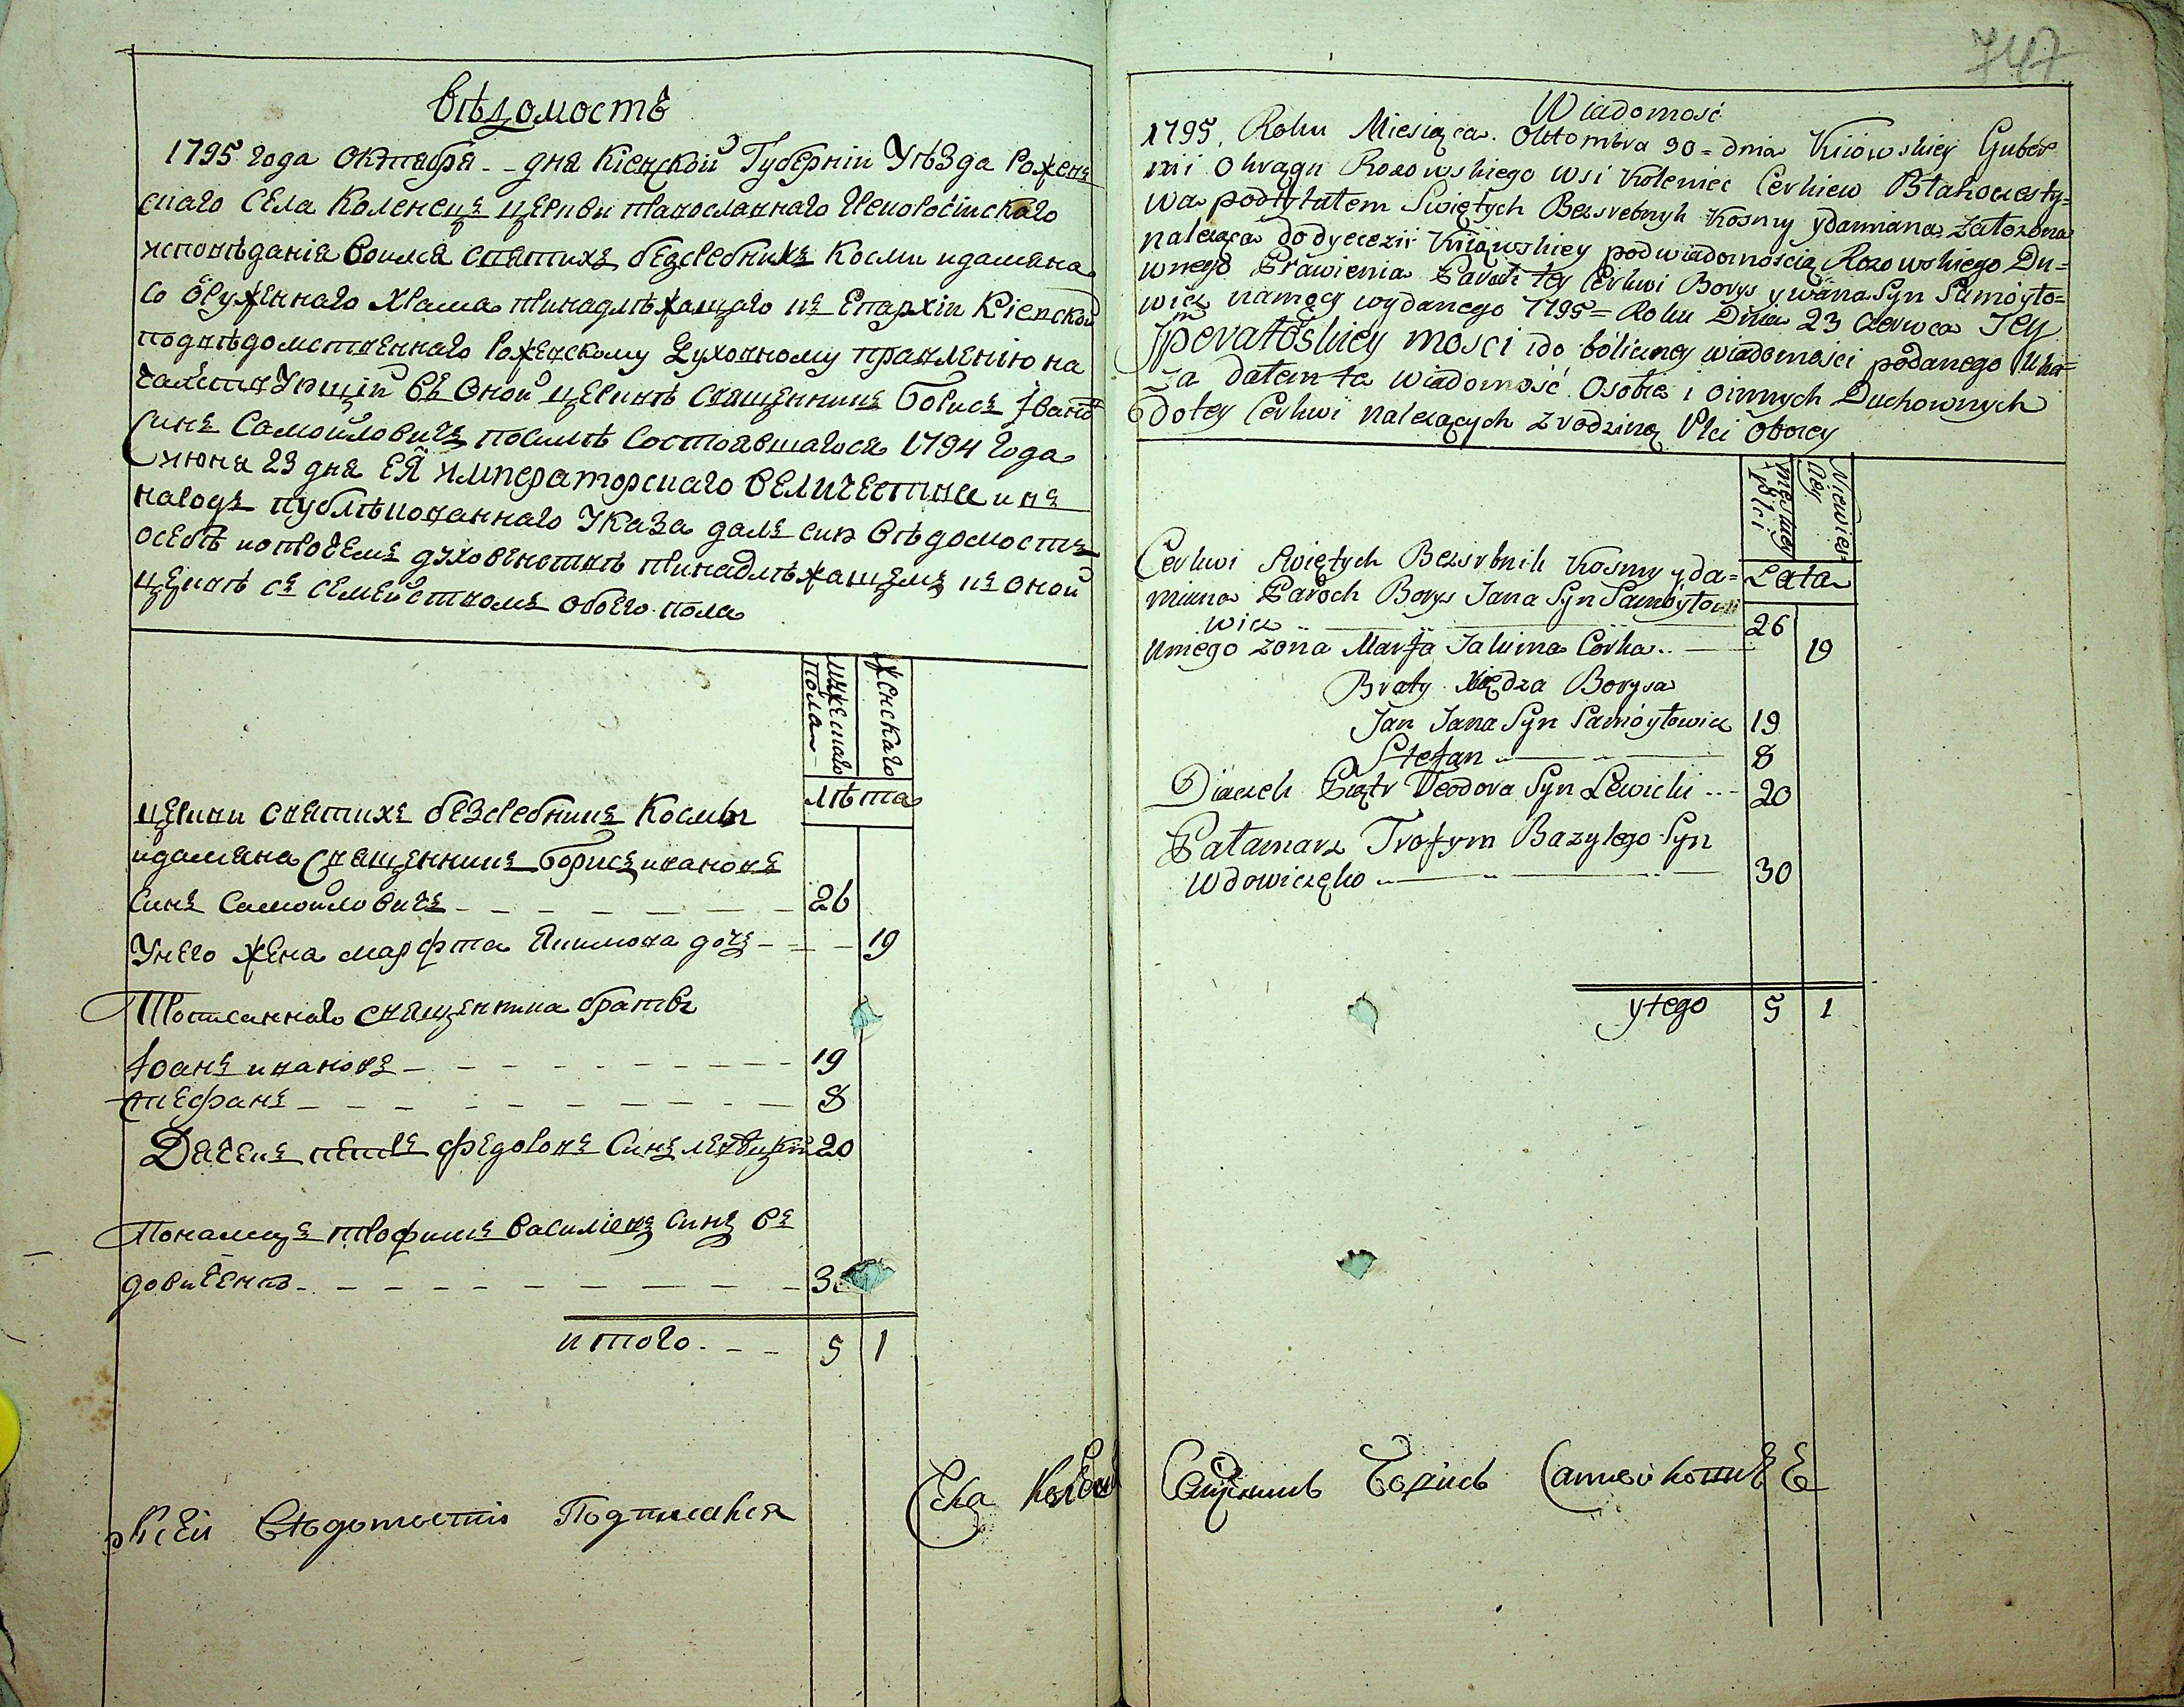 вѣдомость
1795 года Октабря - - дня Кіевской Губерніи Уѣзда Рожевъ
скаго Села Коленецъ церкви православнаго Грекоросійскаго
исповѣданія Воимя святихъ безсребникъ Косми идамяна
Со оруженнаго храма принадлѣжащаго къ Епархіи Кіевской
подвѣдомственнаго Рожевскому Духовному правленію на
чалствующій Въ Оной церквѣ священникъ Борисъ Івановъ
Синъ Самойловичъ посилѣ состоявшагося 1794 года
июня 23 дня ЕЯ императорскаго ВЕЛИЧЕства и въ
народъ публѣкованнаго Указа далъ сию Вѣдомость о
себѣ ипротчемъ духовенствѣ принадлѣжащемъ къ оной
церквѣ съ семействомъ обоего пола
мужескаго пола
женскаго
лѣта
церкви святихъ безсребникъ Космы
идамяна священникъ Борисъ ивановъ
синъ Самойловичъ - - - - - - - 26
Унего жена марфта Якимова дочъ - - - 19
Прописаннаго священника братьы
Іоанъ ивановъ - - - - - - - - - 19
Стефанъ - - - - - - - - - - 8
Дячекъ петръ федоровъ Синъ левѣцкий 20
Понамаръ трофимъ василіевъ синъ въ
довиченко - - - - - - - - - - 3
итого - - - 5 1
Ксей Вѣдомости Подписався
747
Wiadomość
1795. Roku Miesiąca Oktombra 30 = dnia Kiiowskiey Guber
nii Okręgu Rozowskiego wsi Koleniec Cerkiew Błahoczesty=
wa podtytułem Swiętych Bezsrebnyh Kosmy ydamiana załozona
należąca do dyecezii Kiiowskiey podwiadomoscią Rozowskiego Du=
wnego Prawienia Paroch tey Cerkwi Borys ywana Syn Samóyło=
wicz namocy wydanego 1795 = Roku Dnia 23 Czerwca Jey
Jmperatorskiey mosci ido bólicznej wiadomości podanego Uka=
za datem ta wiadomość Osobie i oinnych Duchownych
dotey Cerkwi należących zrodziną Płci Oboiey
męskiey płci
Niewies=
ciey
Lata
Cerkwi Swiętych Bezsrbnik Kosmy yda=
miana Paroch Borys Jana Syn Samóyło
wicz 26
Uniego zona Marfa Jakima Córka 19
Braty Xiędza Borysa
Jan Jana Syn Samóyłowicz 19
Stefan 8
Diaczek Piotr Teodora Syn Lewicki 20
Pałamarz Trofym Bazylego Syn
Wdowiczęko 30
ytego 5 1
Священикъ Борисъ Самойловичъ